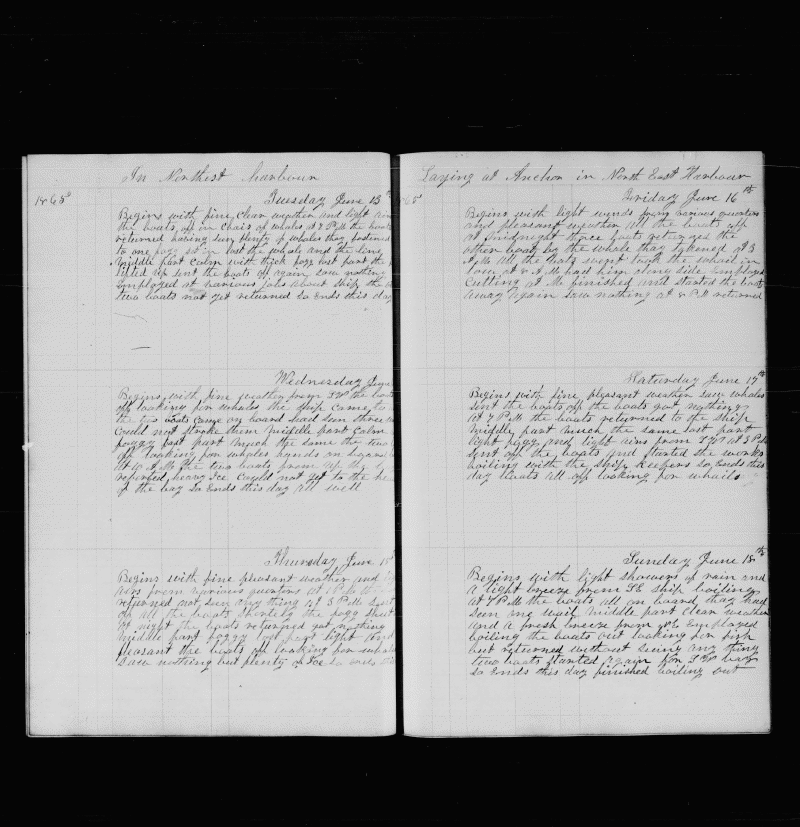 In Northest harbour
1865
Tuesday June 13
Begins with fine clear weather and light
the boats off in chais of whales at 7 PM the boats
returned having seen plenty of whales they fastened
to one fogg set in lost the whale and the line
middle part Calm with thick fogg last part the
lifted up sent the boats off again saw nothing
Employed at various jobs about ship the
two boats not yet returned So Ends this day
Wednesday June
Begins with fine weather from SW the boats
off looking for whales the ship came to
the two boats came on board had seen three
Could not strike them middle part Calm
foggy last part much the same the two
off looking for whales hands on
at 10 AM the two boats from up the
reported heavy Ice Could not get to the he
of the bay So Ends this day All well
Thursday June 15
Begins with fine pleasant weather and
airs from various quarters at
returned not seen any thing At 3 PM sent
of All the boats Shortly the fogg shut
At night the boats returned got nothing
middle part foggy last part light and
pleasant the boats off looking for whales
Saw nothing but plenty of Ice So ends this
Laying at Anchor in North East Harbour
65
Friday June 16th
Begins with light wynds from various quarters
and pleasant weather All the boats off
at midnight three boats returned the
other boat by the whale they fastened At 3
A,M All the boats went took the whail in
tow at 8 A,M had him along side Employed
Cutting at M finished and started the boats
away Again Saw nothing at 8 PM returned
Saturday June 17th
Begins with fine pleasant weather saw whales
sent the boats off the boats got nothing
At 7 PM the boats returned to the ship
middle part much the same last part
light fogg and light airs from SW at 3 PM
sent off the boats and started the works
boiling with the ship Keepers So, Ends this
day boats All off looking for whails
Sunday June 18th
Begins with light showers of rain and
A light breeze from SE ship boiling
At 7 PM the boats All on board they had
seen one whail middle part Clear weather
and a fresh breeze from NE Employed
boiling the boats out looking for fish
but returned without seeing any thing
two boats started Again for SW bay
So Ends this day finished boiling out